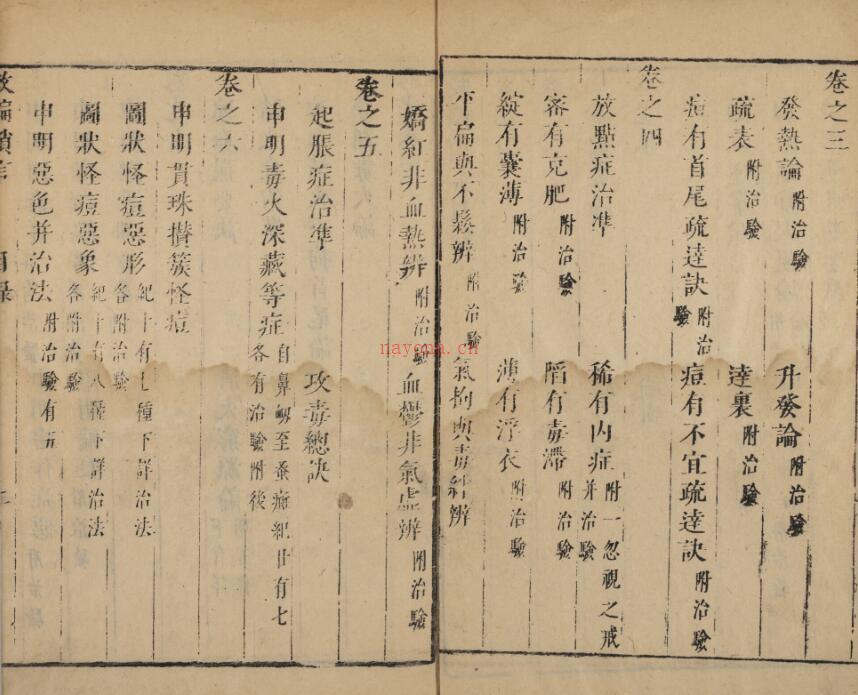 卷之三
發熱論 附治驗 升發論 附治驗
疏表 附治驗 達裏 附治驗
痘有首尾疏達訣 附治驗 痘有不宜疏達訣 附治驗
卷之四
放點症治準 稀有内症 附一忽視之戒并治驗
密有克肥 附治驗 陷有毒滯 附治驗
綻有囊薄 附治驗 薄有浮衣 附治驗
平扁與不鬆辨 附治驗 氣拘與毒結辨
嬌紅非血熱辨 附治驗 血鬱非氣虚辨 附治驗
卷之五
起脹症治準 攻毒總訣
申明毒火深藏等症 自鼻衂至蚕痂紀廿有七各有治驗附後
卷之六
申明貫珠攢簇怪痘
圖狀怪痘惡形 紀十有七種下詳治法各附治驗
圖狀怪痘惡象 紀十有八種下詳治法各附治驗
申明惡色并治法 附治驗有五
救偏瑣言 目錄
nayona.cn